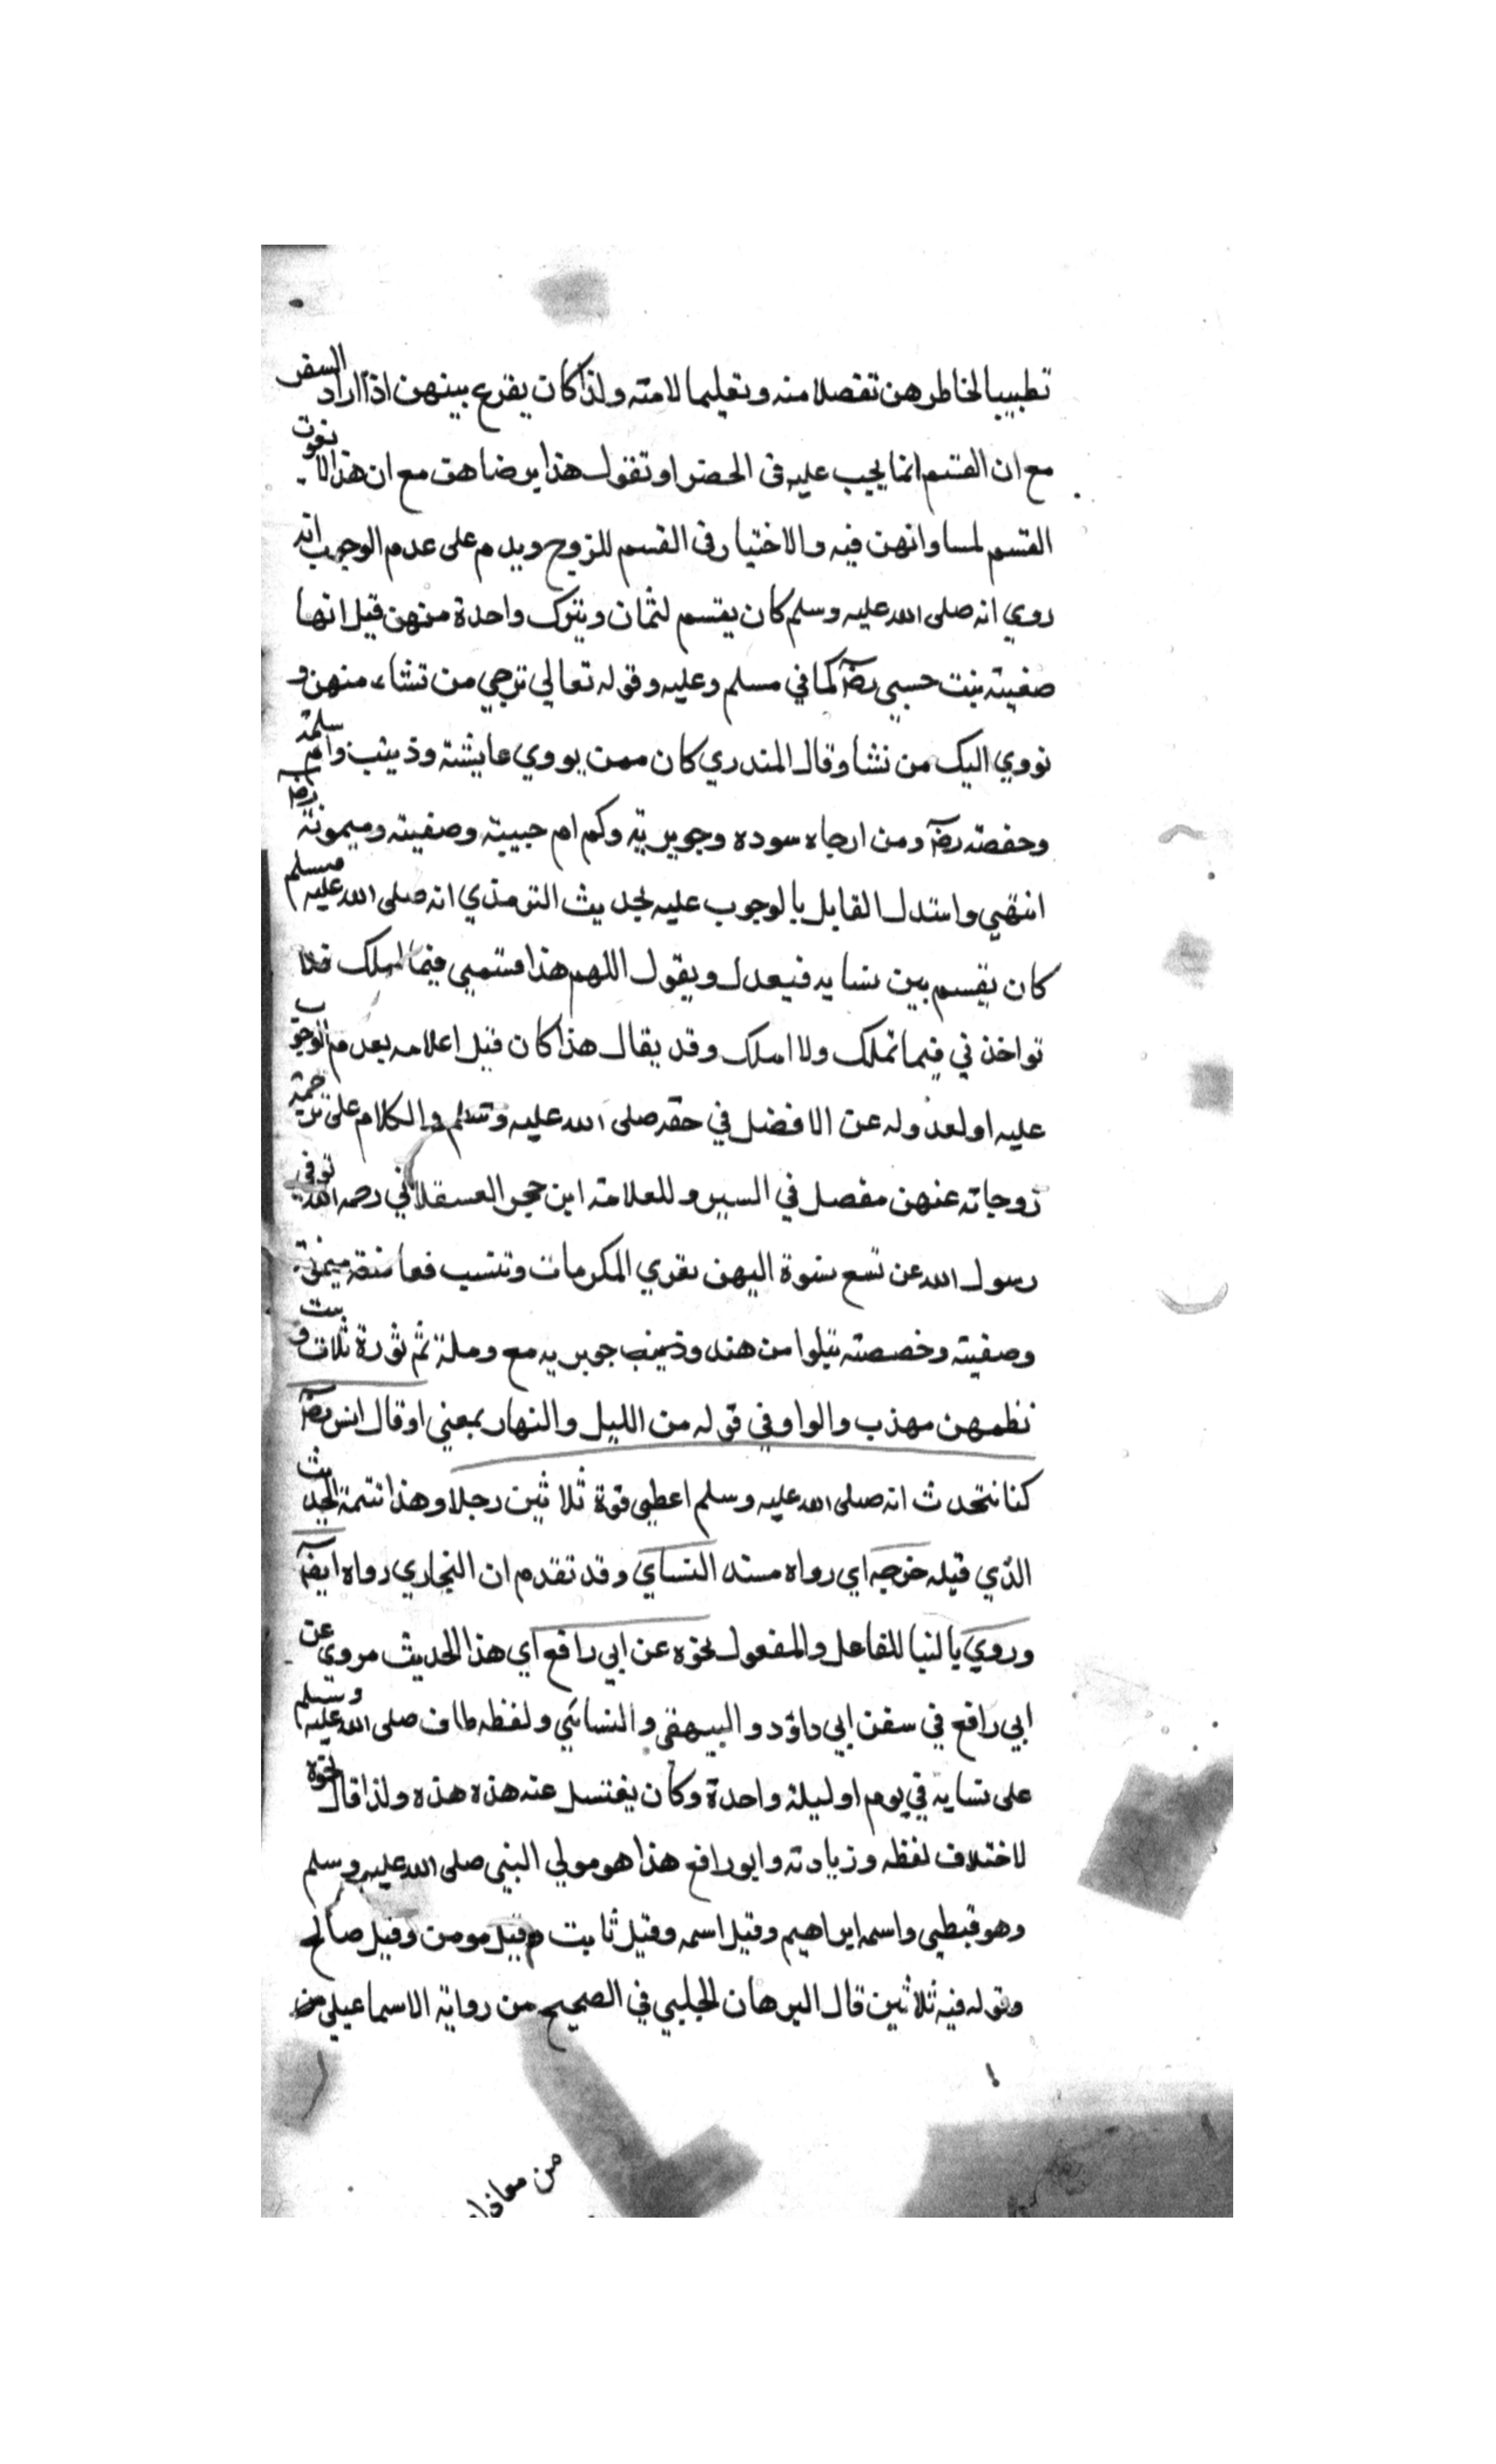 تطبيبا لخاطرهن تفضلا منه وتعليما لامته ولذا كان يقرع بينهن اذا اراد السفر
مع ان القسم انما يجب عليه فى الحضر او تقول هذا برضاهن مع ان هذا لا يفوت
القسم لمساواتهن فيه والاختيار فى القسم للزوج ويدم على عدم الوجوب انه
روي انه صلى الله عليه وسلم كان يقسم لثمان ويترك واحدة منهن قيل انها
صفيته بنت حسيي رضـ كما في مسلم وعليه وقوله تعالي ترجي من تشاء منهن و
تووي اليك من تشا وقال المندري كان ممن يووي عايشة وزينب وام سلمة
وحفصته رضـ ومن ارجاه سوده وجويرية وكم ام حبيبة وصفيته وميمونة رضـ
انتهي واستدل القايل بالوجوب عليه بحديث الترمذي انه صلى الله عليه وسلم
كان يقسم بين نسايه فيعدل ويقول اللهم هذا قسمي فيما املك فلا
تواخذني فيما تملك ولا املك وقد يقال هذا كان قبل اعلامه بعدم الوجوب
عليه او لعدوله عن الافضل في حقه صلى الله عليه وسلم والكلام على ترجمة
زوجاته عنهن مفصل في السير وللعلامة ابن حجر العسقلاني رحمه الله توفي
رسول الله عن تسع نسوة اليهن تعزي المكرمات وتنسب فعائشة ميمونة
وصفيته وخصصته تتلوا من هند وزينب جويريه مع وملة ثم ثورة ثلاث وبيت
نظمهن مهذب والواو في قوله من الليل والنهار بمعني او قال انس رضـ
كنا نتحدث انه صلى الله عليه وسلم اعطي قوة ثلاثين رجلا وهذا تتمة الحديث
الذي قبله خرجه اي رواه مسند النساي وقد تقدم ان البخاري رواه ايضـ
وروي بالنبا للفاعل والمفعول نحوه عن ابي رافع اي هذا الحديث مروي عن
ابي رافع في سفن ابي داؤد والبيهقي والنسائي ولفظه طاف صلى الله عليه وسلم
على نسايه في يوم او ليلة واحدة وكان يغتسل عنه هذه هذه ولذا قال نحوه
لاختلاف لفظه وزيادته وابو رافع هذا هو مولي النبي صلى الله عليه وسلم
وهو قبطي واسمه ابراهيم وقيل اسمه وقيل ثابت وقيل مومن وقيل صالح
وقوله فيه ثلاثين قال البرهان الحلبي في الصحيح من رواية الاسماعيلي
من معاذ